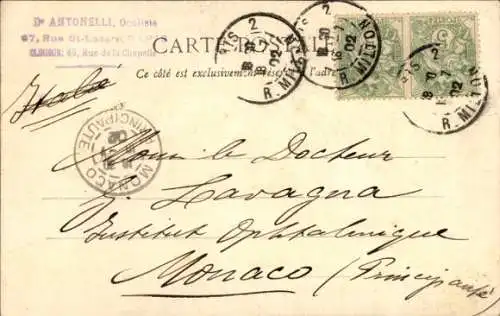 Dr ANTONELLI, Oculiste
67, Rue St-Lazare, PARIS
CLINIQUE: 69, Rue de la Chapelle
CARTE POSTALE
Ce côté est exclusivement réservé à l'adresse
Italie
PARIS 2
R. MILTON
02
PARIS 2
R. MILTON
02
PARIS 2
R. MILTON
02
MONACO
PRINCIPAUTÉ
Monsieur le Docteur
G. Lavagna
Institut Ophtalmique
Monaco (Principauté)